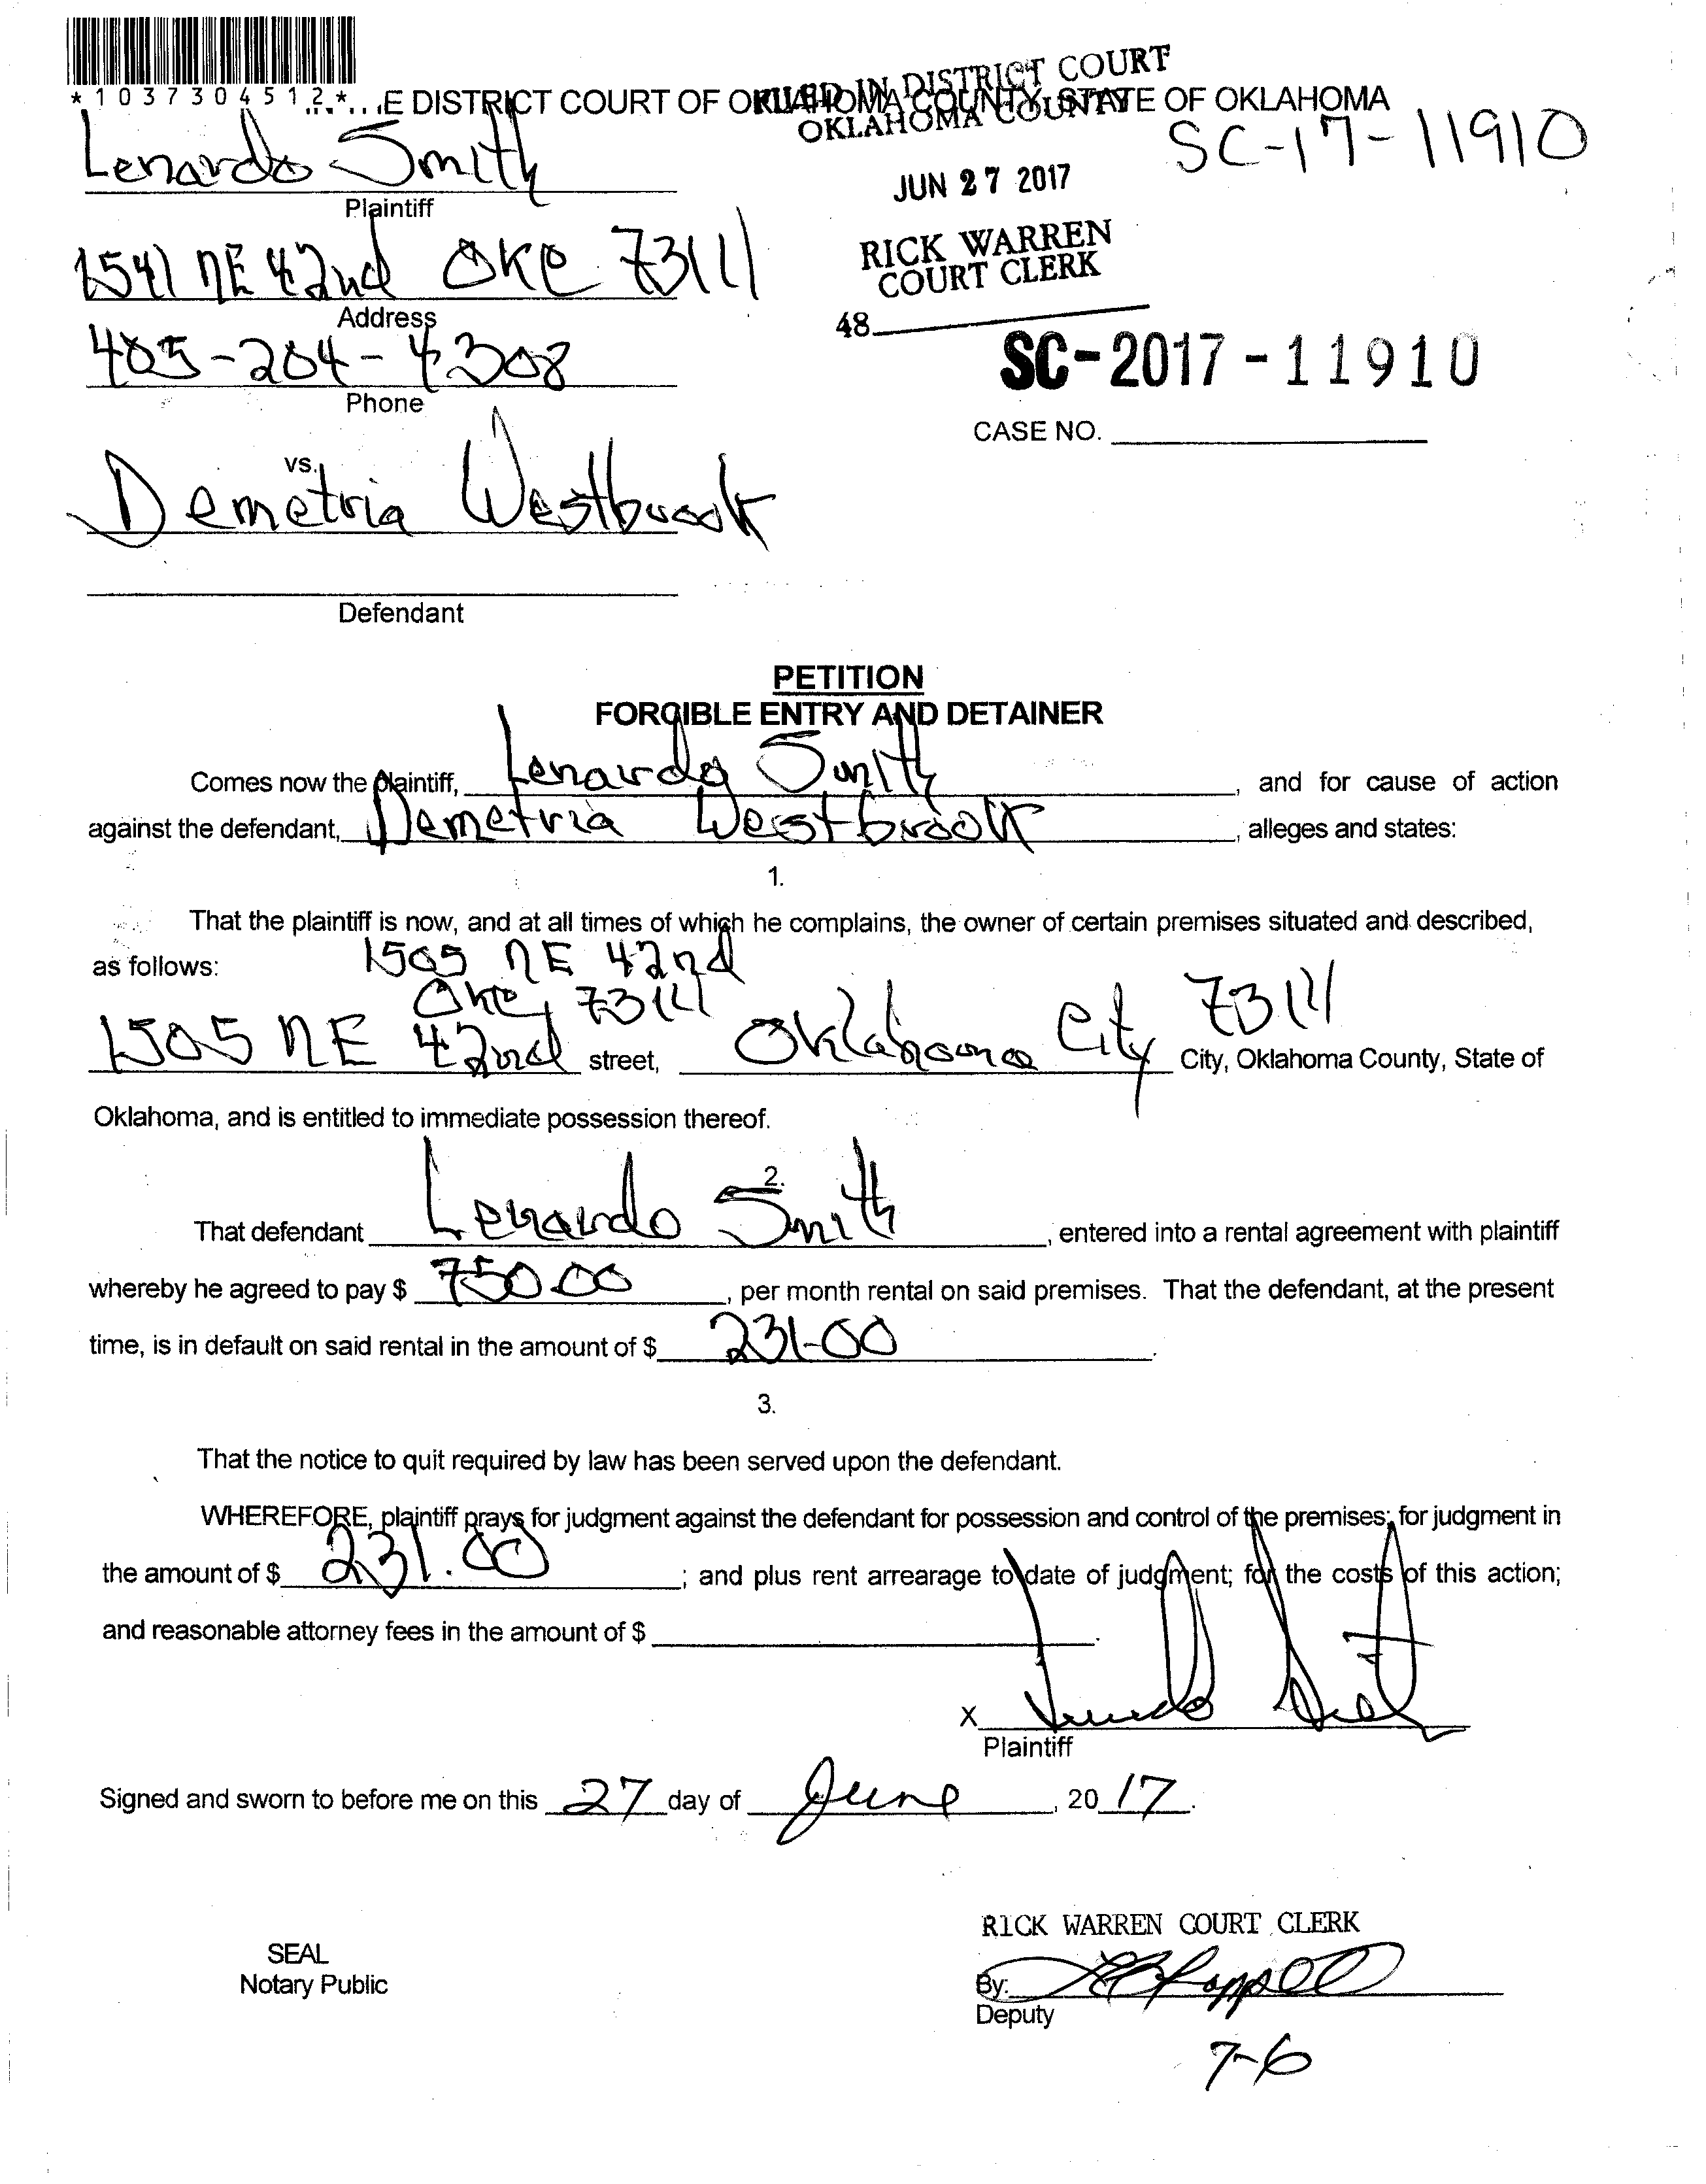 *1037304512*
...E DISTRICT COURT OF OKLAHOMA COUNTY, STATE OF OKLAHOMA
FILED IN DISTRICT COURT
OKLAHOMA COUNTY
SC-17-11910
Lenardo Smith
Plaintiff
JUN 27 2017
1541 NE 42nd OKC 73111
Address
RICK WARREN
COURT CLERK
405-204-4308
Phone
48
SC-2017-11910
CASE NO.
vs.
Demetria Westbrook
Defendant
PETITION
FORCIBLE ENTRY AND DETAINER
Comes now the plaintiff, Lenardo Smith, and for cause of action
against the defendant, Demetria Westbrook, alleges and states:
1.
That the plaintiff is now, and at all times of which he complains, the owner of certain premises situated and described,
as follows: 1505 NE 42nd
OKC, 73111
1505 NE 42nd street, Oklahoma City 73111 City, Oklahoma County, State of
Oklahoma, and is entitled to immediate possession thereof.
2.
That defendant Lenardo Smith, entered into a rental agreement with plaintiff
whereby he agreed to pay $ 750.00, per month rental on said premises. That the defendant, at the present
time, is in default on said rental in the amount of $ 231-00.
3.
That the notice to quit required by law has been served upon the defendant.
WHEREFORE, plaintiff prays for judgment against the defendant for possession and control of the premises; for judgment in
the amount of $ 231.00; and plus rent arrearage to date of judgment; for the costs of this action;
and reasonable attorney fees in the amount of $
X Lenardo Smith
Plaintiff
Signed and sworn to before me on this 27 day of June, 2017.
RICK WARREN COURT CLERK
SEAL
Notary Public
By:
Deputy
7-6